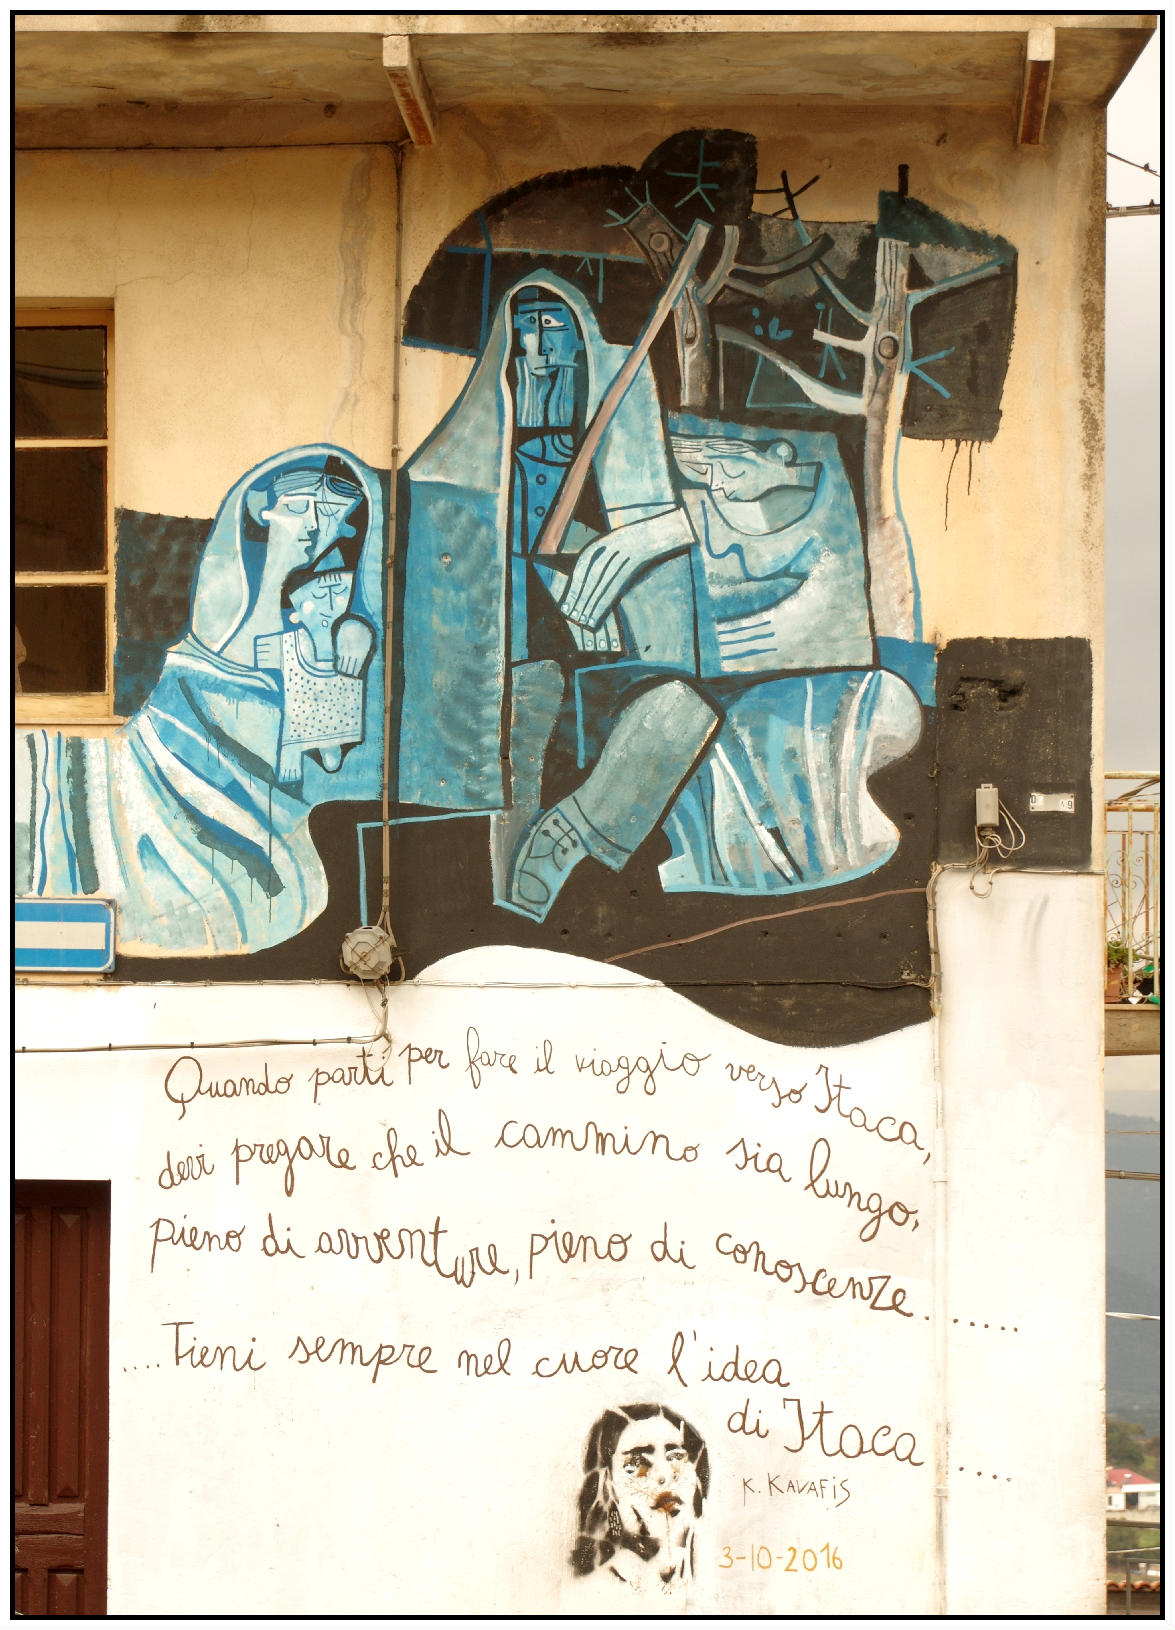 Quando parti per fare il viaggio verso Itaca,
devi pregare che il cammino sia lungo,
pieno di avventure, pieno di conoscenze.......
....Tieni sempre nel cuore l'idea
di Itaca ....
K. KAVAFIS
3-10-2016